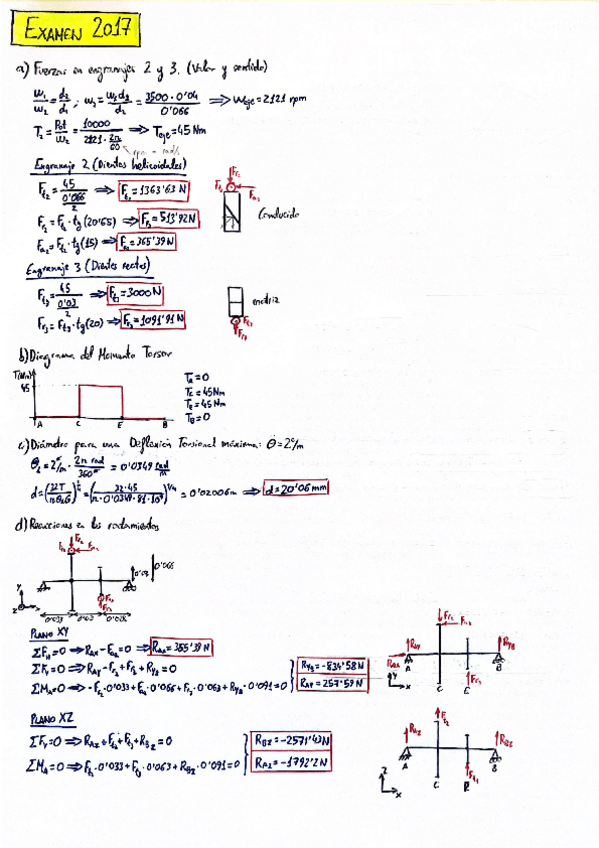 EXAMEN 2017
a) Fuerzas en engranajes 2 y 3. (Valor y sentido)
w₁/w₂ = d₂/d₁ ; w₂ = w₁d₁/d₂ = 3500·0'04/0'066 ⇒ Weje = 2121 rpm
T₂ = Pot/W₂ = 10000/(2121·2π/60) ⇒ Teje = 45 Nm
Engranaje 2 (Dientes helicoidales)
Ft₂ = 45/(0'066/2) ⇒ Ft₂ = 1363'63 N
Fr₂ = Ft₂·tg(20'65) ⇒ Fr₂ = 513'92 N
Fa₂ = Ft₂·tg(15) ⇒ Fa₂ = 365'39 N
Fr₂
Ft₂
Fa₂
Conducido
Engranaje 3 (Dientes rectos)
Ft₃ = 45/(0'03/2) ⇒ Ft₃ = 3000 N
Fr₃ = Ft₃·tg(20) ⇒ Fr₃ = 1091'91 N
motriz
Ft₃
Fr₃
b) Diagrama del Momento Torsor
T(Nm)
45
A C E B
TA = 0
TC = 45 Nm
TE = 45 Nm
TB = 0
c) Diámetro para una Deflexión Torsional máxima: θ = 2°/m
= 0'0349 rad/m
d = (32T/πθG)^1/4 = (32·45/π·0'0349·81·10⁹)^1/4 = 0'02006 m ⇒ d = 20'06 mm
d) Reacciones en los rodamientos
Fr₂
Ft₂ Fa₂
0'03 0'066
Ft₃
Fr₃
Y
Z X
0'033
PLANO XY
ΣFH = 0 ⇒ RAx - Fa₂ = 0 ⇒ RAx = 365'39 N
ΣFV = 0 ⇒ RAy - Fr₂ + Fr₃ + RyB = 0
ΣMA = 0 ⇒ -Fr₂·0'033 + Fa₂·0'066 + Fr₃·0'063 + RyB·0'091 = 0
RyB = -834'58 N
RAy = 257'59 N
Fr₂
Fa₂
RAy RyB
RAx
A B
Fr₃
Y
X
C E
PLANO XZ
ΣFV = 0 ⇒ RAz + Ft₂ + Ft₃ + RBz = 0
ΣMA = 0 ⇒ Ft₂·0'033 + Ft₃·0'063 + RBz·0'091 = 0
RBz = -2571'43 N
RAz = -1792'2 N
Ft₂
RAz RBz
A B
Z
X
C
Ft₃